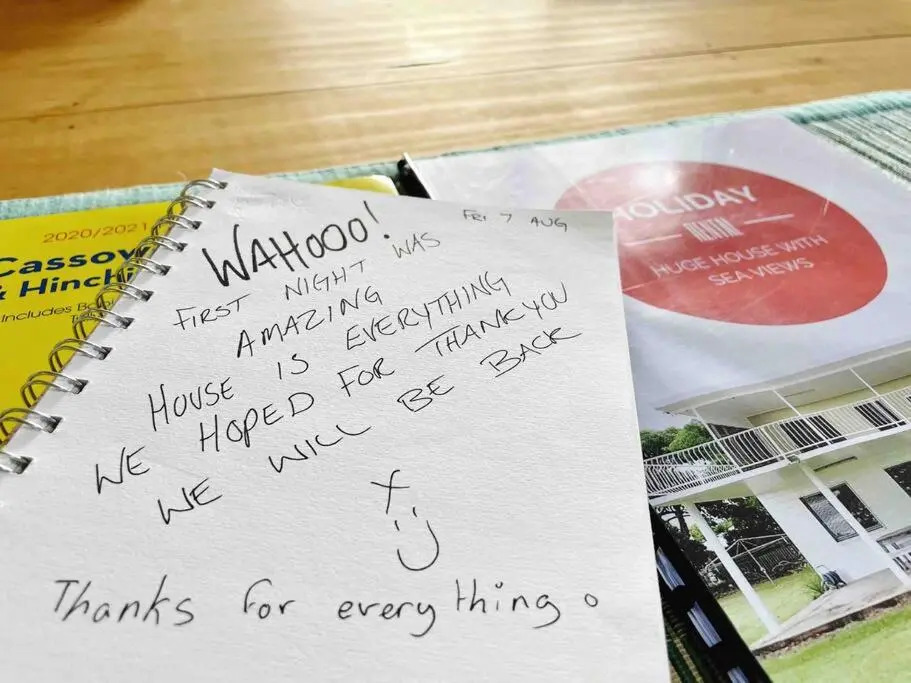 2020/2021
Cassow
& Hinchi
Includes
WAHOOO!
FRI 7 AUG
FIRST NIGHT WAS
AMAZING
HOUSE IS EVERYTHING
WE HOPED FOR THANKYOU
WE WILL BE BACK
x
:)
Thanks for everything o
HOLIDAY
HUGE HOUSE WITH
SEA VIEWS